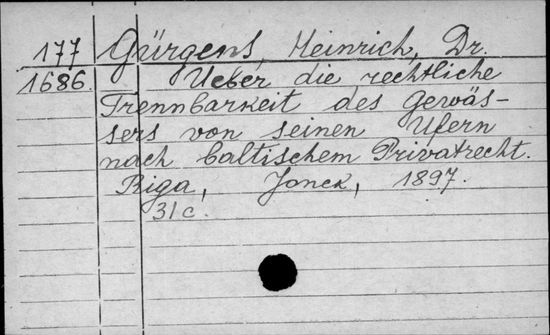 177 Gürgens, Heinrich, Dr.
1686. Ueber die rechtliche
Trennbarkeit des Gewäs-
sers von seinen Ufern
nach baltischem Privatrecht.
Riga, Jonck, 1897.
31c.